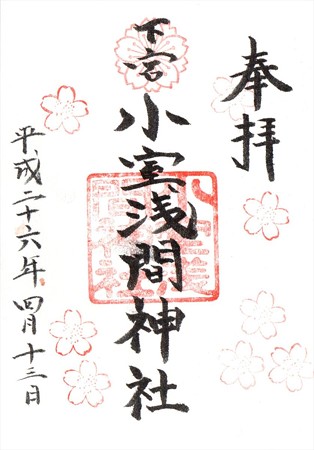 奉拝
下宮
小室浅間神社
平成二十六年四月十三日